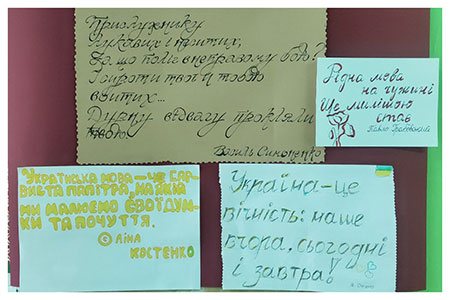 Прислужнику
Лукавих і ситих,
За що поліг в неправому бою?
І сироти твої й тобою
вбитих...
Дурну відвагу прокляли
твою.
Василь Симоненко
Рідна мова
на чужині
Ще милішою
стає
Павло Грабовський
Українська мова – це бар-
виста палітра, на якій
ми малюємо свої дум-
ки та почуття.
© Ліна
Костенко
Україна – це
вічність: наше
вчора, сьогодні
і завтра!